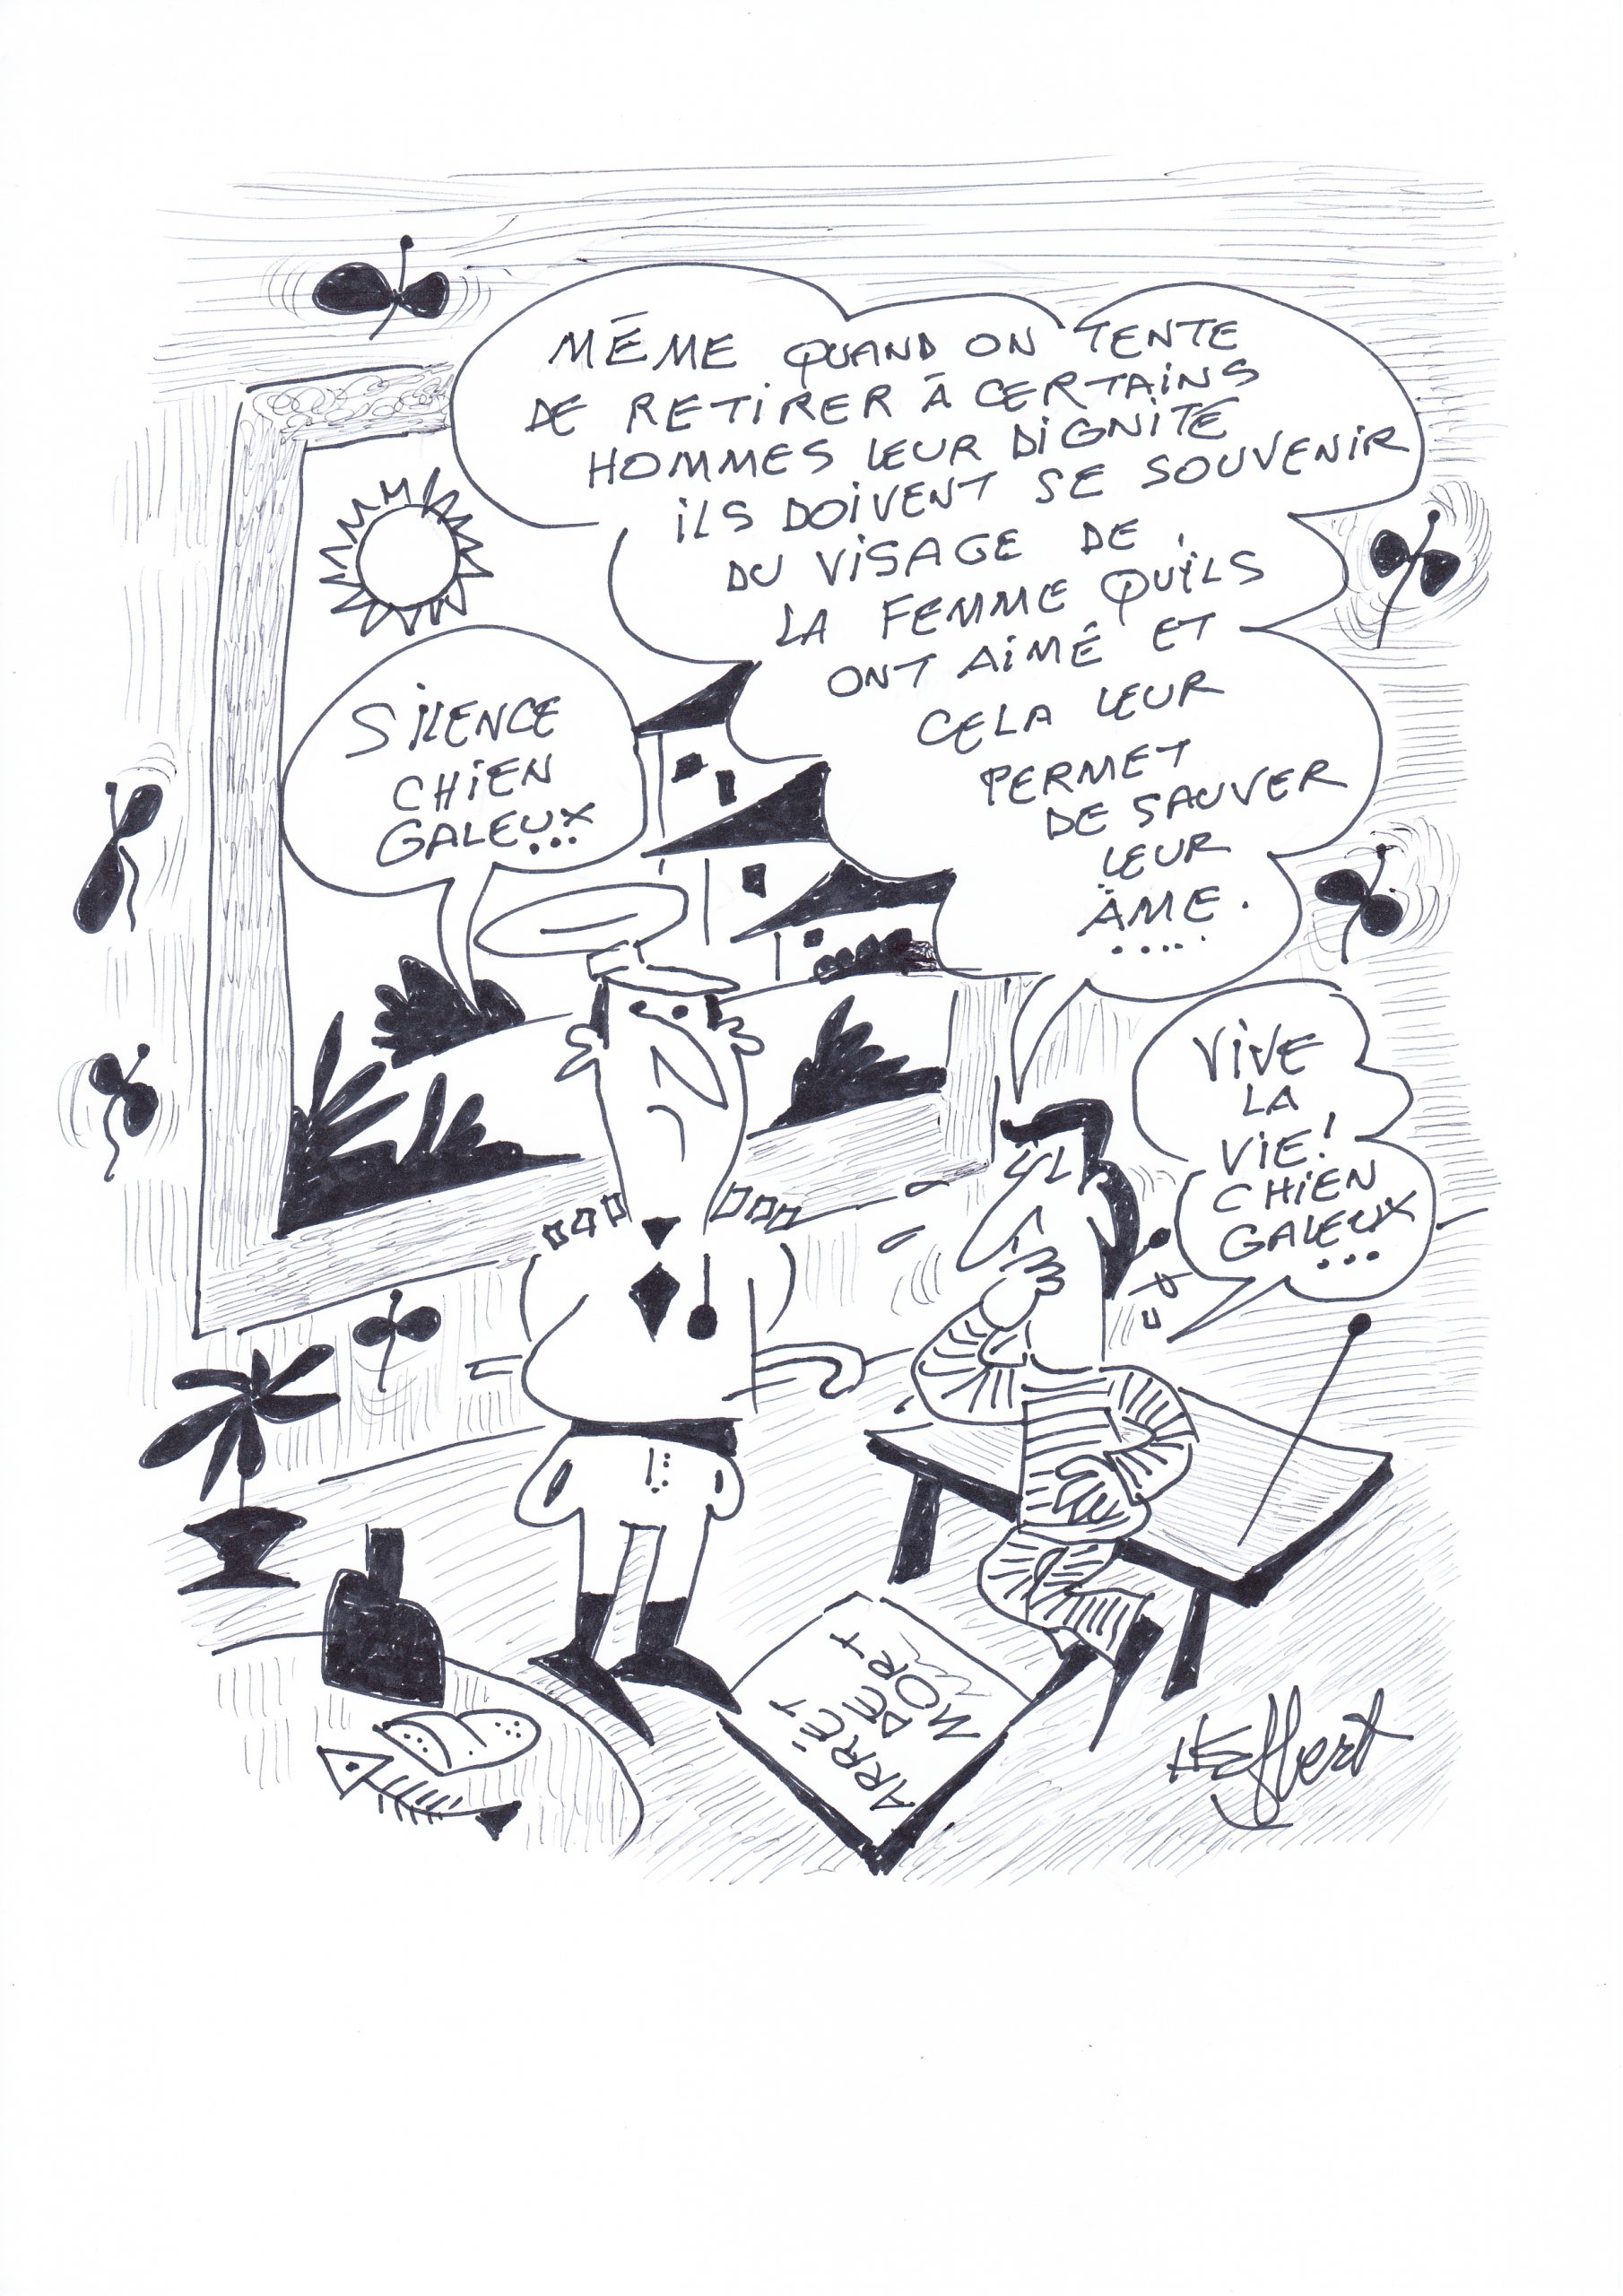 MÊME QUAND ON TENTE
DE RETIRER À CERTAINS
HOMMES LEUR DIGNITÉ
ILS DOIVENT SE SOUVENIR
DU VISAGE DE
LA FEMME QU'ILS
ONT AIMÉ ET
CELA LEUR
PERMET
DE SAUVER
LEUR
ÂME.
.....
SILENCE
CHIEN
GALEUX...
VIVE
LA
VIE!
CHIEN
GALEUX
...
ARRÊT
DE
MORT